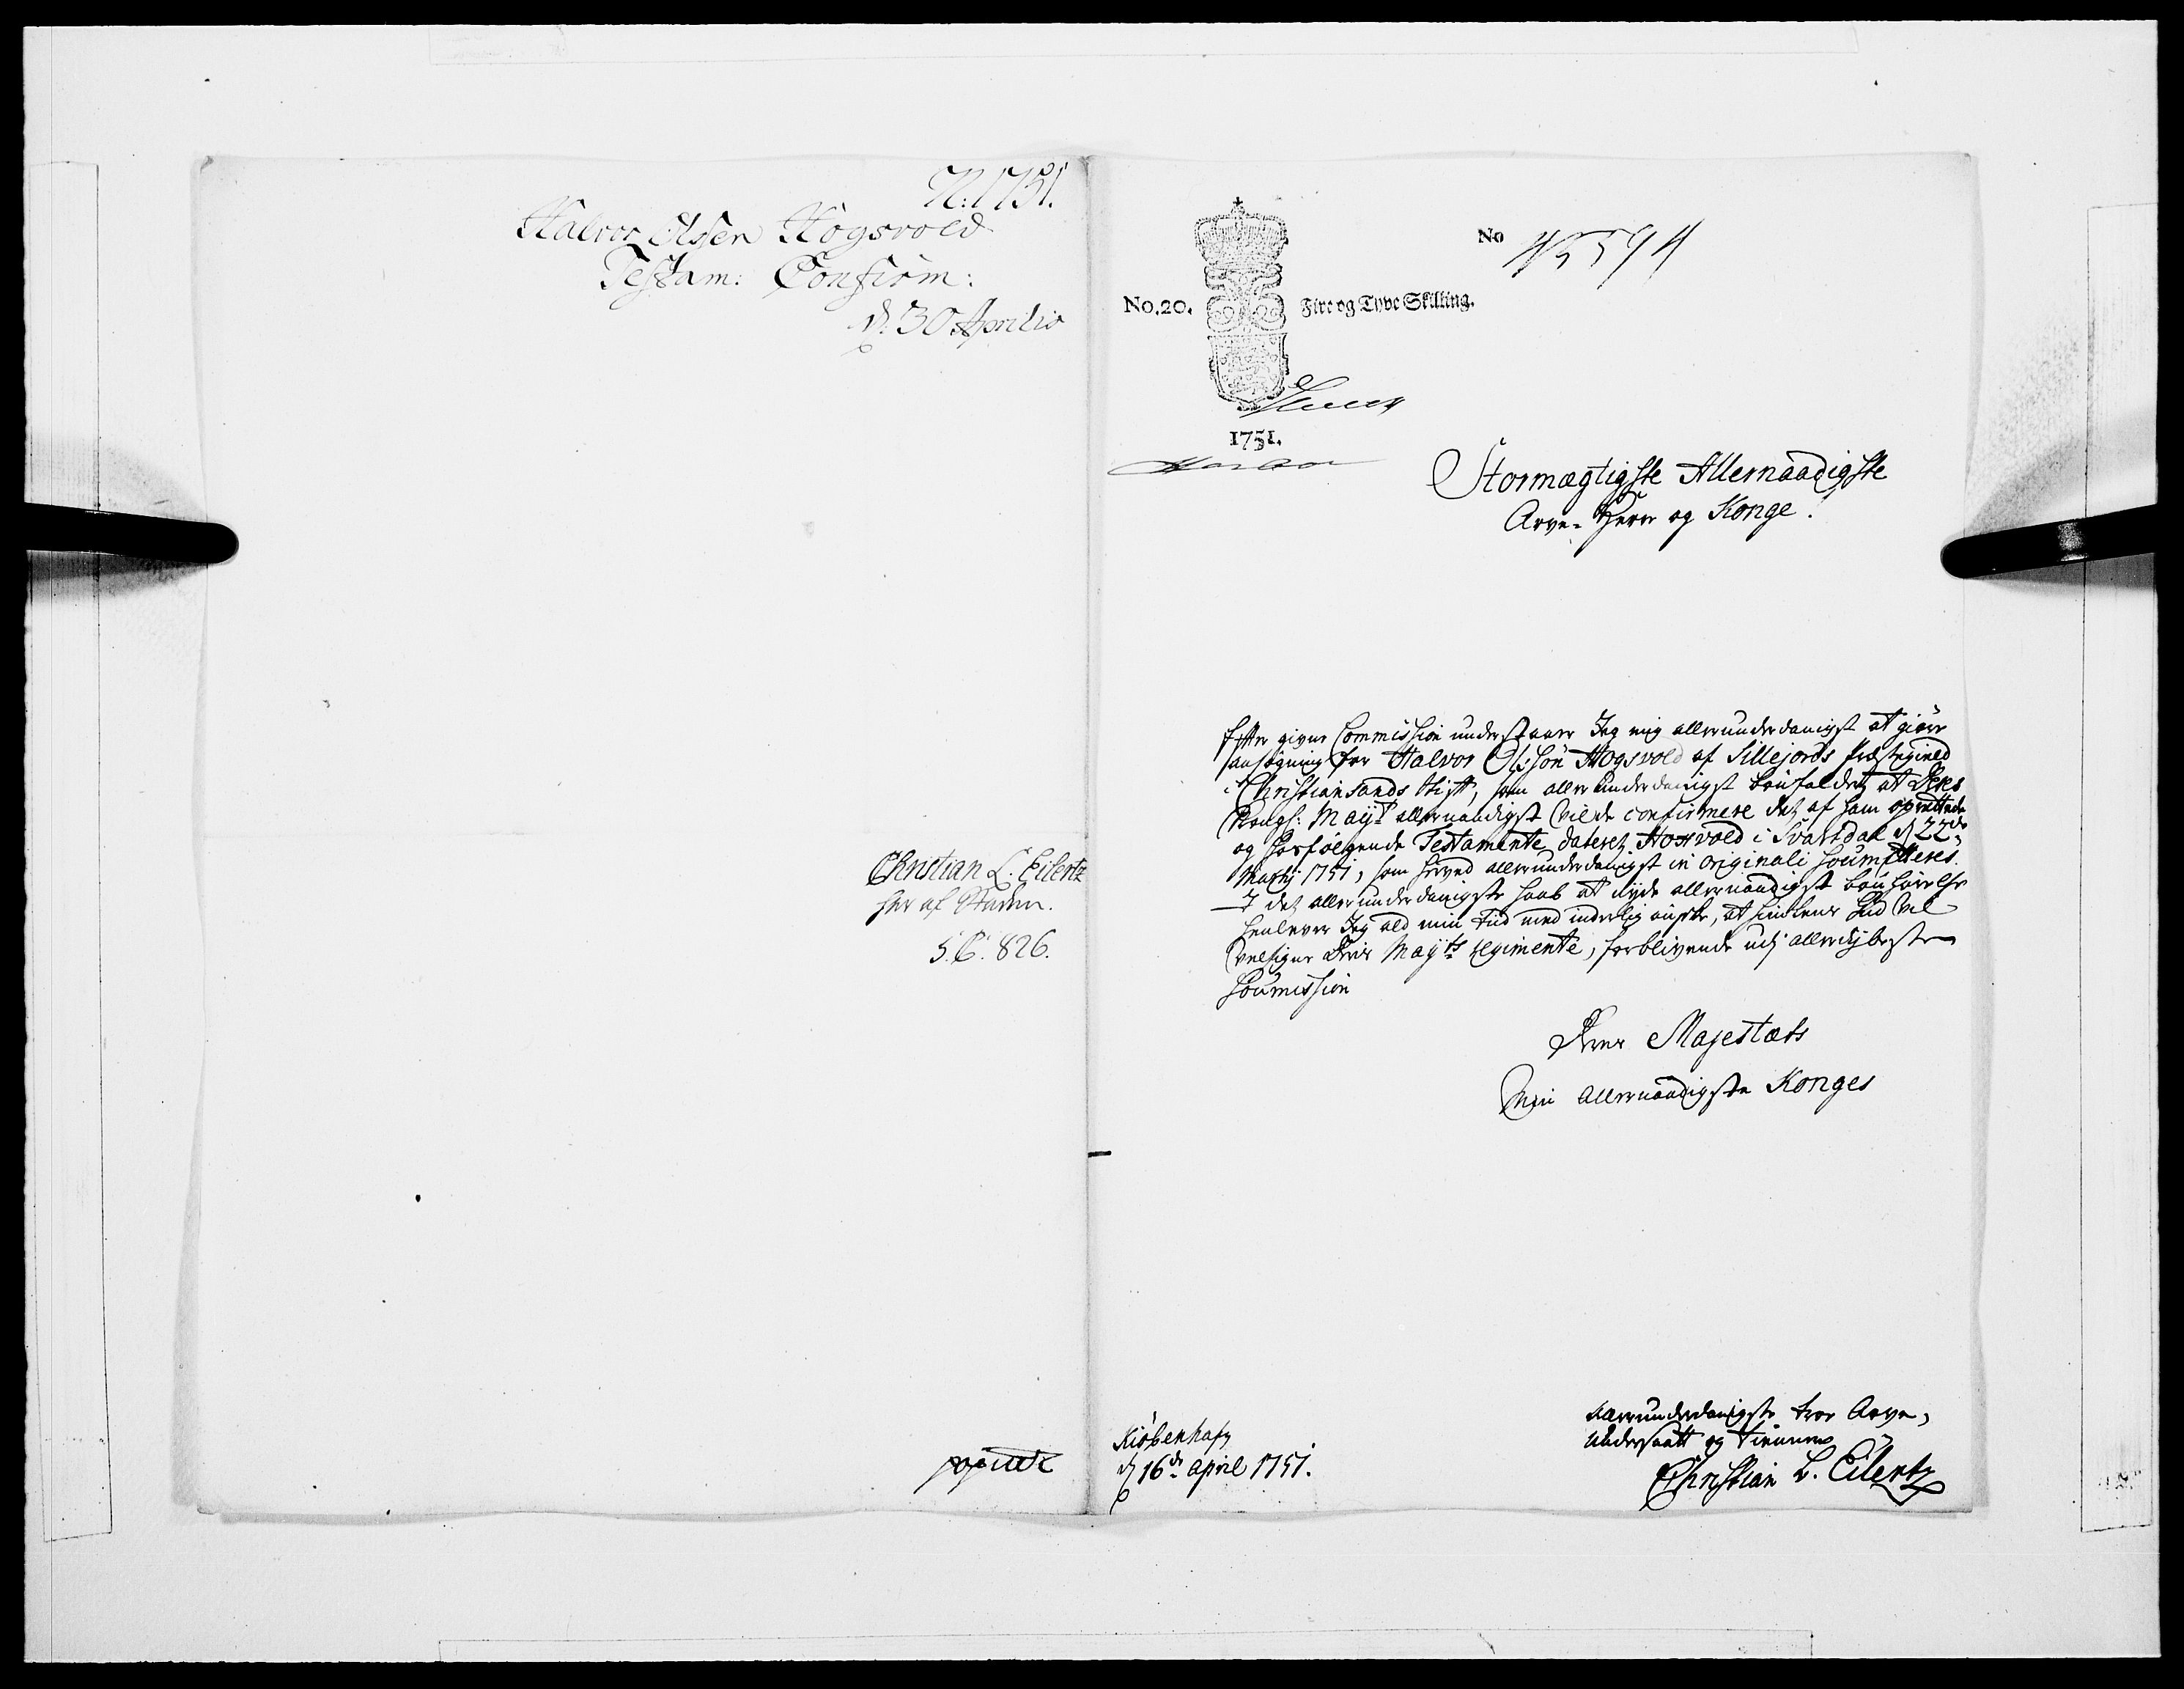 N: 1751.
Halvor Olssen Högsvold
Testam: Confirm:
d. 30 Aprilis
Christian L. Eilertz
her af Staden.
S. C. 826.
No
No. 20.
Fire og Tyve Skilling.
1751.
Stormægtigste Allernaadigste
Arve-Herre og Konge!
Efter given Commission understaaer Jeg mig allerunderdanigst at giöre
ansögning for Halvor Olssön Högsvold af Sillejords Præstegield
i Christiansands Stift, som allerunderdanigst bönfalder, at Deres
Kongl: Mayt allernaadigst vilde confirmere det af ham oprettede
og hosfölgende Testamente dateret Hogsvold i Svartdal d 22de
Martij 1751, som herved allerunderdanigst in originali soumitteres.
I det allerunderdanigste haab at nyde allernaadigst bönhörelse
henlever Jeg ald min tiid med inderlig önske, at himlens Gud vil
velsigne Deres Mayts regimente, forblivende udj allerdybeste
soumission
Deres Majestæts
Min Allernaadigste Konges
Kiöbenhafn
d 16de april 1751.
Allerunderdanigste troe Arve-
Undersaatt og tienere
Christian L. Eilertz